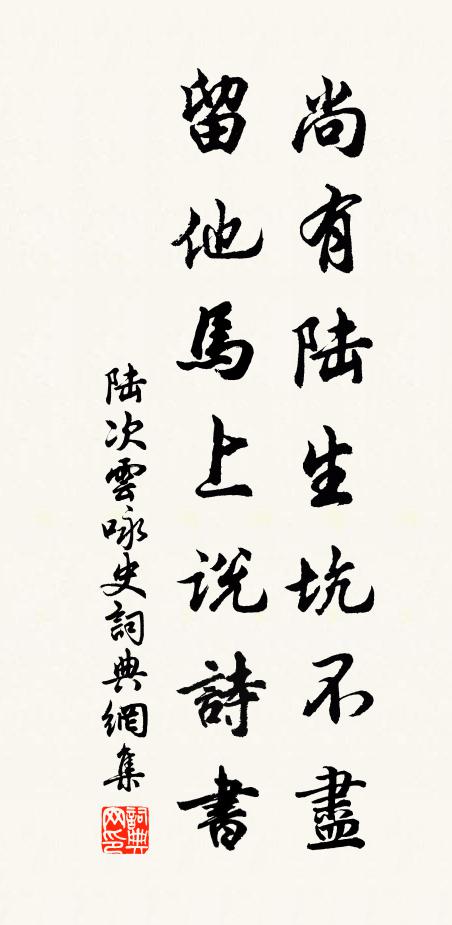 尚有陆生坑不盡
留他馬上说詩書
陆次雲咏史詞典網集
詞典
网印